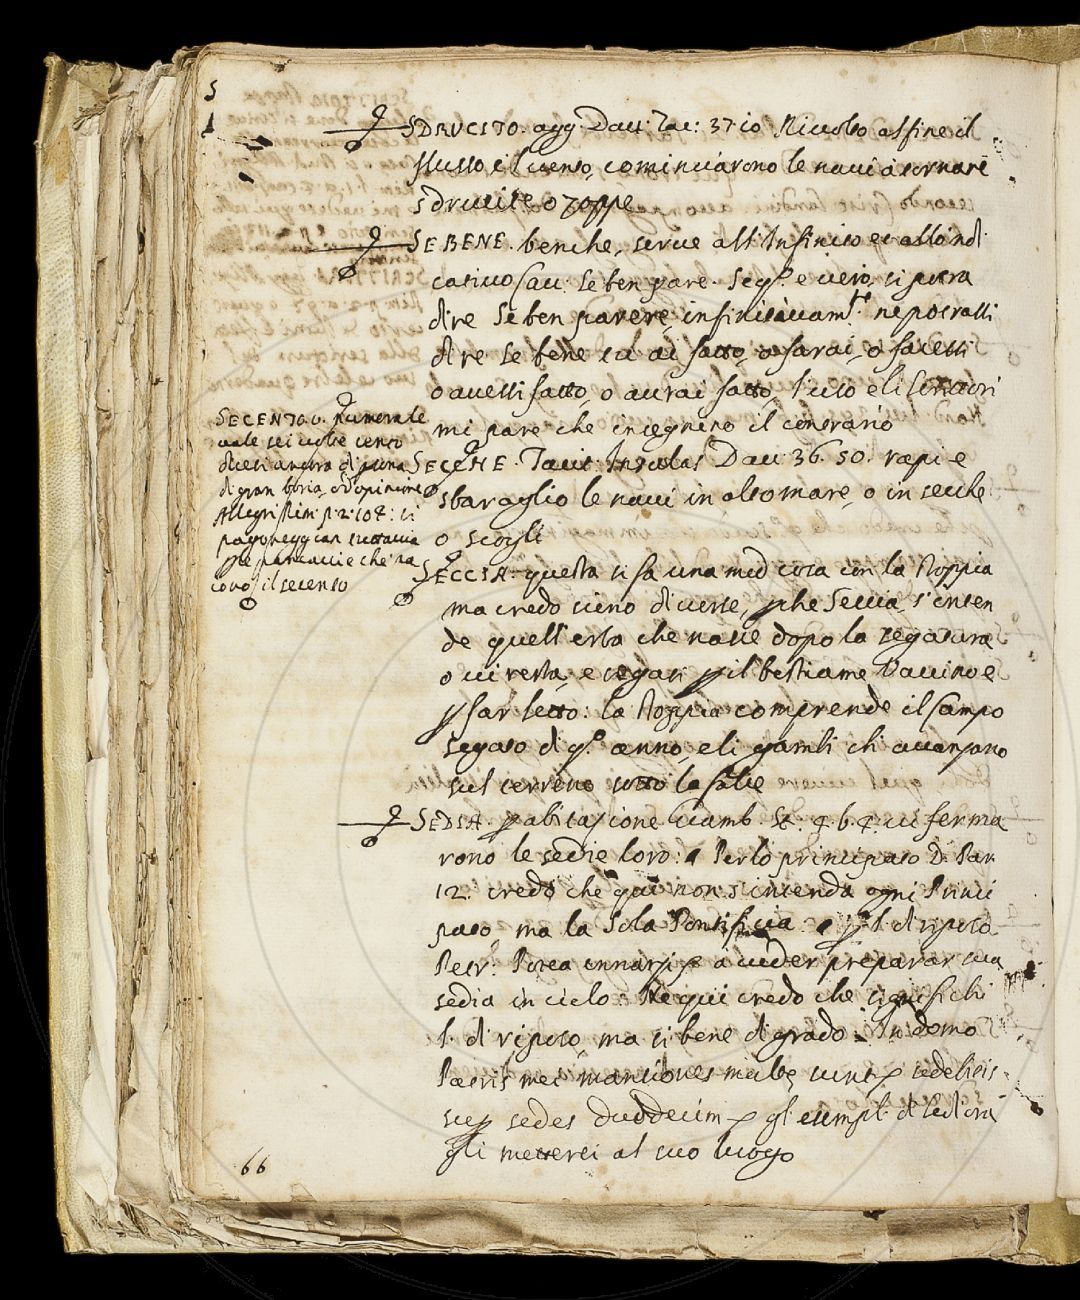 S
SDRUCITO. agg. Dav: Tac: 37 10 Rivolto alfine il
flusso e il vento, cominciarono le navi à tornare
sdrucite o zoppe
SEBENE. benche, serve all'Infinito et all'Indi
cativo Sav: Se ben pare. Seg.º e vero, si potra
dire Se ben parere, infinitivam.te ne potratti
dire Se bene tu ai fatto, o farai, o facessi
o avessi fatto, o avrai fatto, l'uso e li Scrittori
mi pare che insegnino il contrario
SECENTO u. numerale
vale sei volte cento
dicesi ancora di
di gran boria, od opinione
Allegri Rim: p. 2. 104: si
pavoneggian tuttavia
che ha
il secento
SECCHE. Tacit: Insulas Dav: 36. 50. rapi e
sbaraglio le navi in alto mare, o in secche
o scogli
SECCIA. questa si fa una med cosa con la stoppia
ma credo sieno diverse, pche Seccia, s'inten
de quell'erba che nasce dopo la segatura
o vi resta, e segasi p il bestiame Vaccino e
p far letto: la stoppia comprende il Campo
segato di q.º anno, e li gambi ch avanzano
sul terreno sotto la falce
SEDIA. p abitazione Giamb. St. 4. b. 4. vi ferma
rono le sedie loro: Per lo principato D. Par.
12. credo che qui non s'intenda ogni Princi
pato ma la Sola Pontificia p s. di riposo
Petr: Potea innarzi p a veder preparar sua
sedia in cielo: Ne qui credo che significhi
s. di riposo, ma si bene di grado. In domo
Patris mei mansiones multę sunt p sedebitis
sup sedes duodecim p gl'esempli di Sediora
gli metterei al suo luogo
66